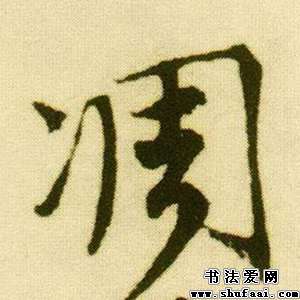 凋
书法爱网
www.shufaai.com